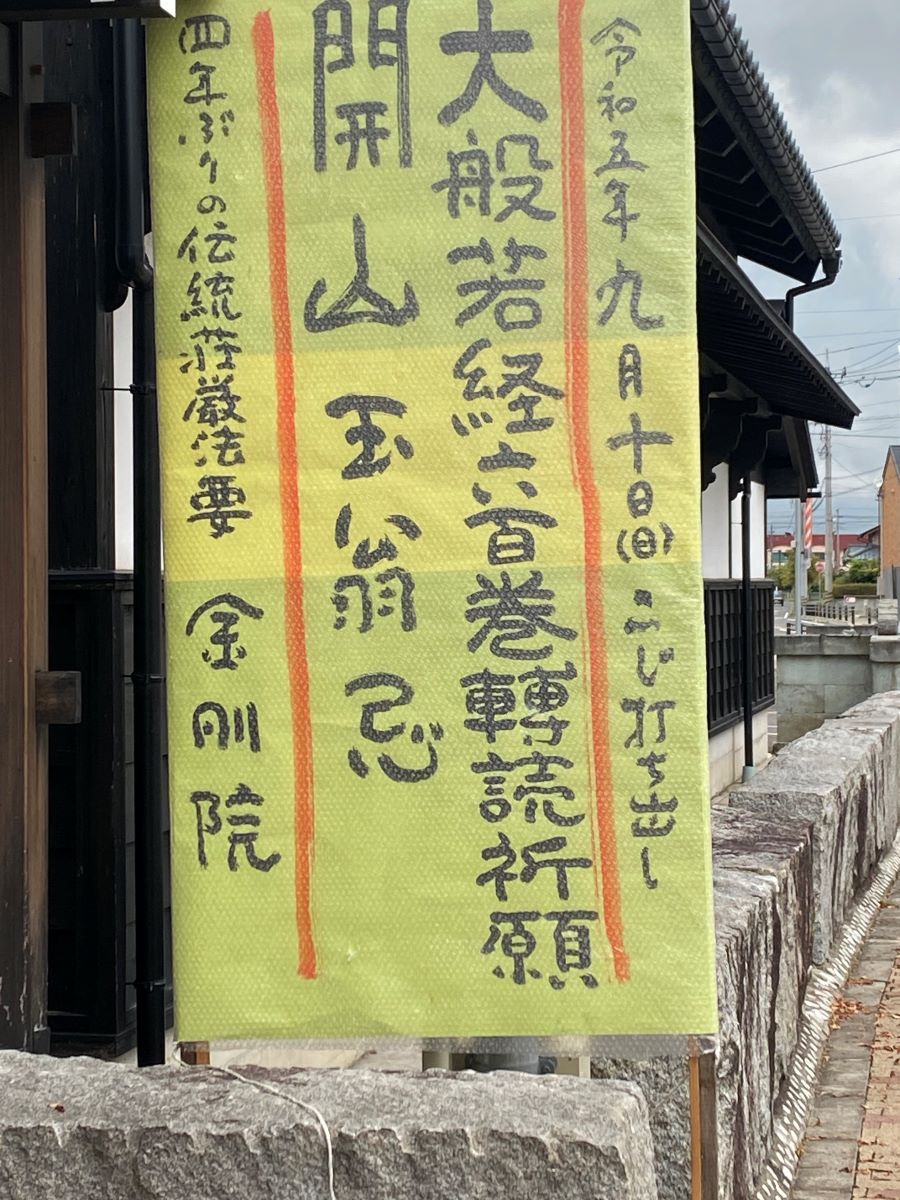 令和五年九月十日(日)二じ打ち出し
大般若経六百巻轉読祈願
開山玉翁忌
四年ぶりの伝統荘厳法要 金剛院